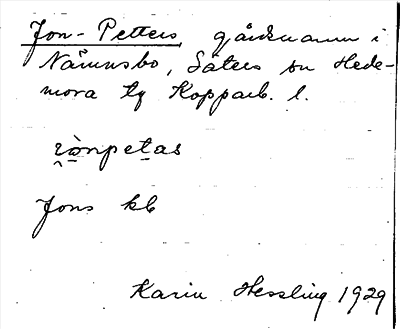 Jon-Petters gårdsnamn i
Nämnsbo, Säters sn Hede-
mora tg Kopparb. l.
rònpetas
Jons kb
Karin Hessling 1929